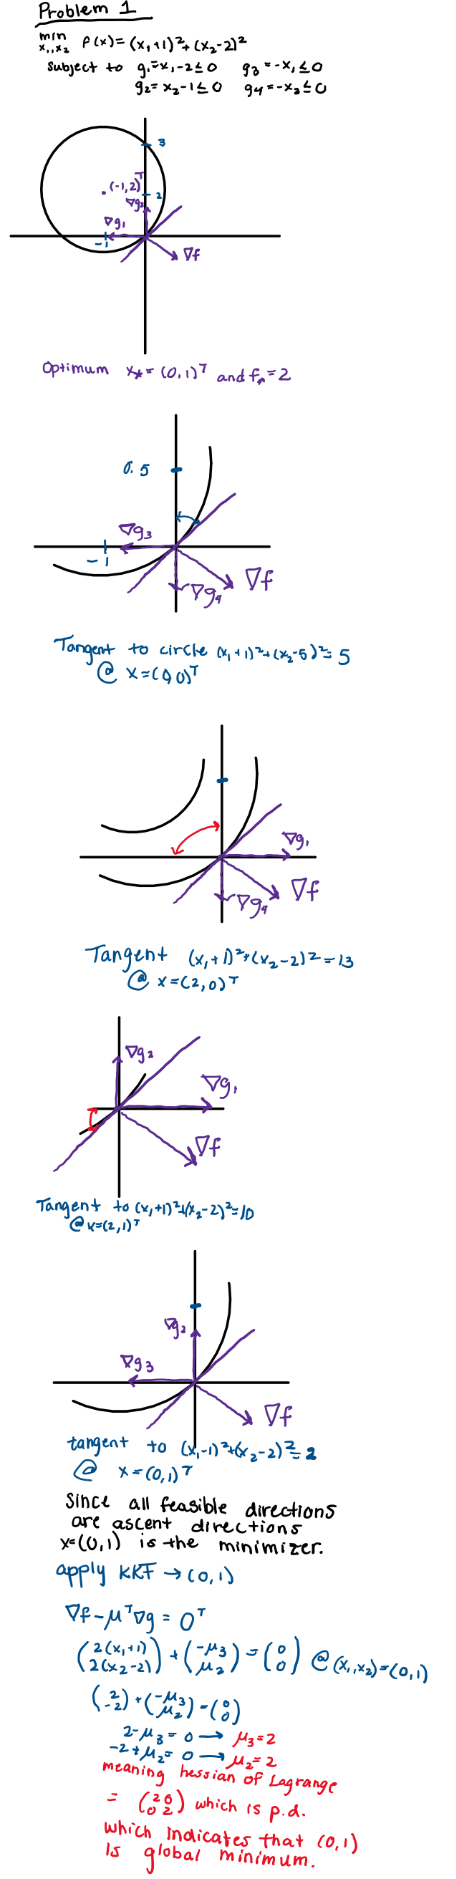 Problem 1
min
x₁,x₂ f(x)= (x₁+1)²+(x₂-2)²
Subject to g₁=x₁-2≤0 g₃=-x₁≤0
g₂=x₂-1≤0 g₄=-x₂≤0
3
(-1,2)ᵀ
2
∇g₂
∇g₁
-1
∇f
Optimum x*=(0,1)ᵀ and f*=2
0.5
∇g₃
-1
∇g₄
∇f
Tangent to circle (x₁+1)²+(x₂-5)²=5
@ x=(0,0)ᵀ
∇g₁
∇f
∇g₄
Tangent (x₁+1)²+(x₂-2)²=13
@ x=(2,0)ᵀ
∇g₂
∇g₁
∇f
Tangent to (x₁+1)²+(x₂-2)²=10
@x=(2,1)ᵀ
∇g₂
∇g₃
∇f
tangent to (x₁-1)²+(x₂-2)²=2
@ x=(0,1)ᵀ
Since all feasible directions
are ascent directions
x=(0,1) is the minimizer.
apply KKT → (0,1)
∇f-μᵀ∇g = 0ᵀ
(2(x₁+1) 2(x₂-2)) + (-μ₃ μ₂) = (0 0) @(x₁,x₂)=(0,1)
(2 -2) + (-μ₃ μ₂) = (0 0)
2-μ₃ = 0 → μ₃=2
-2+μ₂= 0 → μ₂=2
meaning hessian of Lagrange
= (2 0 0 2) which is p.d.
which indicates that (0,1)
is global minimum.